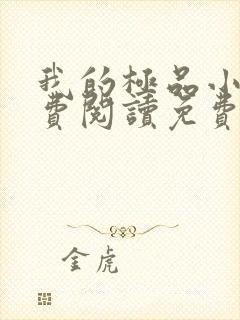 我的極品小
費閱讀免費
金虎